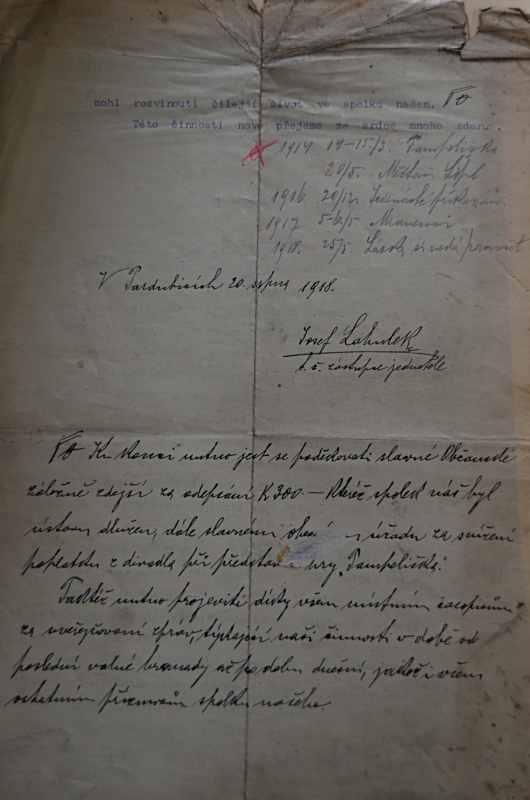 mohl rozvinouti čilejší život ve spolku našem.
Této činnosti nové přejeme ze srdce mnoho zdaru.
1914 14–15/3. Pampeliška
20/5.
1916 20/12.
1917 5–6/5.
1918. 25/5. Láska
V Pardubicích 20. srpna 1918.
Josef
t. č. zástupce jednatele
Ku konci nutno jest se poděkovati slavné Občanské
záložně zdejší za odepsání K 300.– kteréž spolek náš byl
ústavu dlužen, dále slavnému úřadu za snížení
poplatku z divadla při představ hry „Pampeliška."
Taktéž nutno projeviti díky všem místním časopisům
za uveřejňování zpráv, týkající naší činnosti v době od
poslední valné hromady až po dobu dnešní, jakož i všem
ostatním příznivcům spolku našeho.